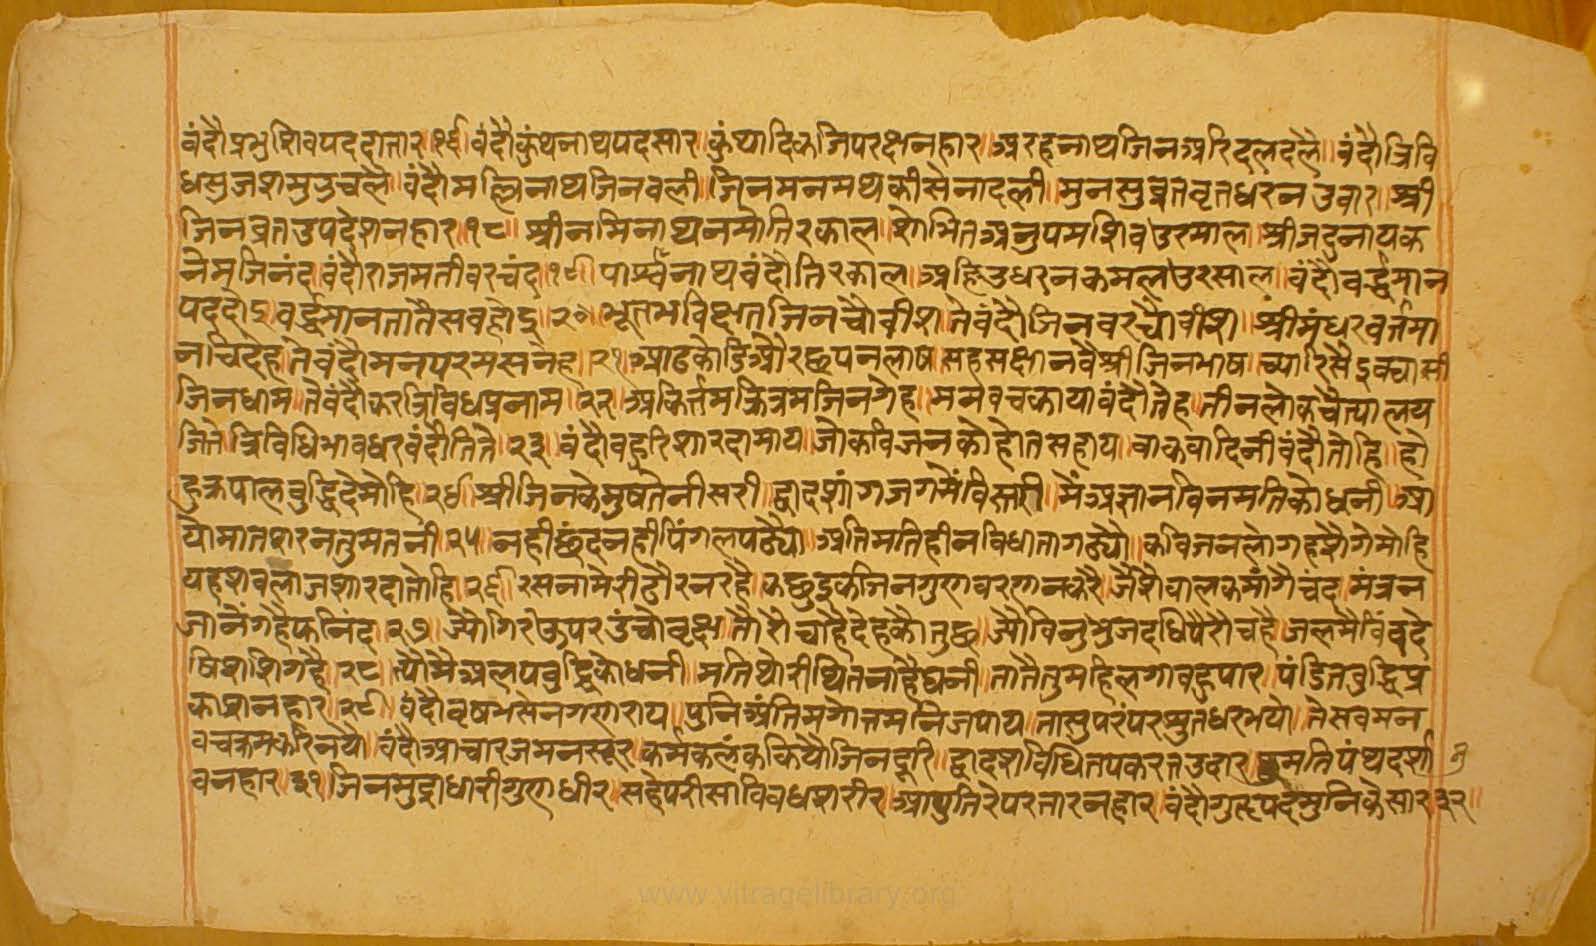 वंदौप्रभुशिवपददातार॥१६॥वंदौकुंथनाथपदसार॥कुंथादिकजिपरक्षनहार॥अरहनाथजिनअरिदलदलै॥वंदौत्रिवि
धसुजशमुउचलै॥वंदौमल्लिनाथजिनवली॥जिनमनमथकीसेनादली॥मुनसुव्रतवृतधरनउवार॥श्री
जिनव्रतउपदेशनहार॥१८॥श्रीनमिनाथनमौतिरकाल॥शोभितअनुपमशिवउरमाल॥श्रीजदुनायक
नेमजिनंद॥वंदौराजमतीवरचंद॥१९॥पार्स्वनाथवंदौतिरकाल॥अहिउधरनकमलउरसाल॥वंदौवर्द्धमान
पददोइ॥वर्द्धमानतातैसवहोइ॥२०॥भूतभविक्षतजिनचौवीश॥तेवंदौजिनवरचौवीश॥श्रीमंधरवर्त्तमा
नविदेह॥तेवंदौमनपरमसनेह॥२१॥आठकोडिऔरछपनलाष॥सहससक्षानवैश्रीजिनभाष॥च्यारिसैइक्यासी
जिनधाम॥तेवंदौकरत्रिविधप्रनाम॥२२॥अकिर्त्तमक्रित्रमजिनगेह॥मनवचकायावंदौतेह॥तीनलोकचैत्यालय
जिते॥त्रिविधिभावधरवंदौतिते॥२३॥वंदौवहुरिशारदामाय॥जोकविजनकोहोतसहाय॥वाकवादिनीवंदौतोहि॥हो
हुक्रपालवुद्धिदेमोहि॥२४॥श्रीजिनकेमुषतैनीसरी॥द्वादशांगजगमैंविस्तरी॥मैंअज्ञानविनमतिकोधनी॥आ
योमातशरनतुमतनी॥२५॥नहीछंदनहीपिंगलपठ्यौ॥अतिमतिहीनविधातागठ्यौ॥कविजनलोगहशैगेमोहि
यहशवलाजशारदातोहि॥२६॥रसनामेरीठौरनरहै॥कछुइकजिनगुणवरणनकरै॥जैशैवालकमांगैचंद॥मंत्रन
जानेंगहैफनिंद॥२७॥ज्यौगिरऊपरउंचोवृक्ष॥तौरोचाहैदेहकौतुछ॥ज्यौविनुभुजदधिपैरोचहै॥जलमैविंवदे
षिशशिगहै॥२८॥त्यौमैअलपवुद्धिकोधनी॥मतिथोरीथितनाहैघनी॥तातैतुमहिलगावहुपार॥पंडितवुद्धिप्र
काशनहार॥२९॥वंदौवृषभसेनगणराय॥पुनिअंतिमगोत्तमनिजपाय॥तासुपरंपरश्रुतधरभये॥तेसवमन
वचक्रमकरिनये॥वंदौआचारजमनस्फूर॥कर्मकलंककियौजिनदूरि॥द्वादशविधितपकरतउदार॥कुमतिपंथदर्शा
वनहार॥३१॥जिनमुद्राधारीगुणधीर॥सहेपरीसाविवधशरीर॥आपुतिरेपरतारनहार॥वंदौगुरूपदमुनिकेसार३२॥
www.vitragelibrary.org